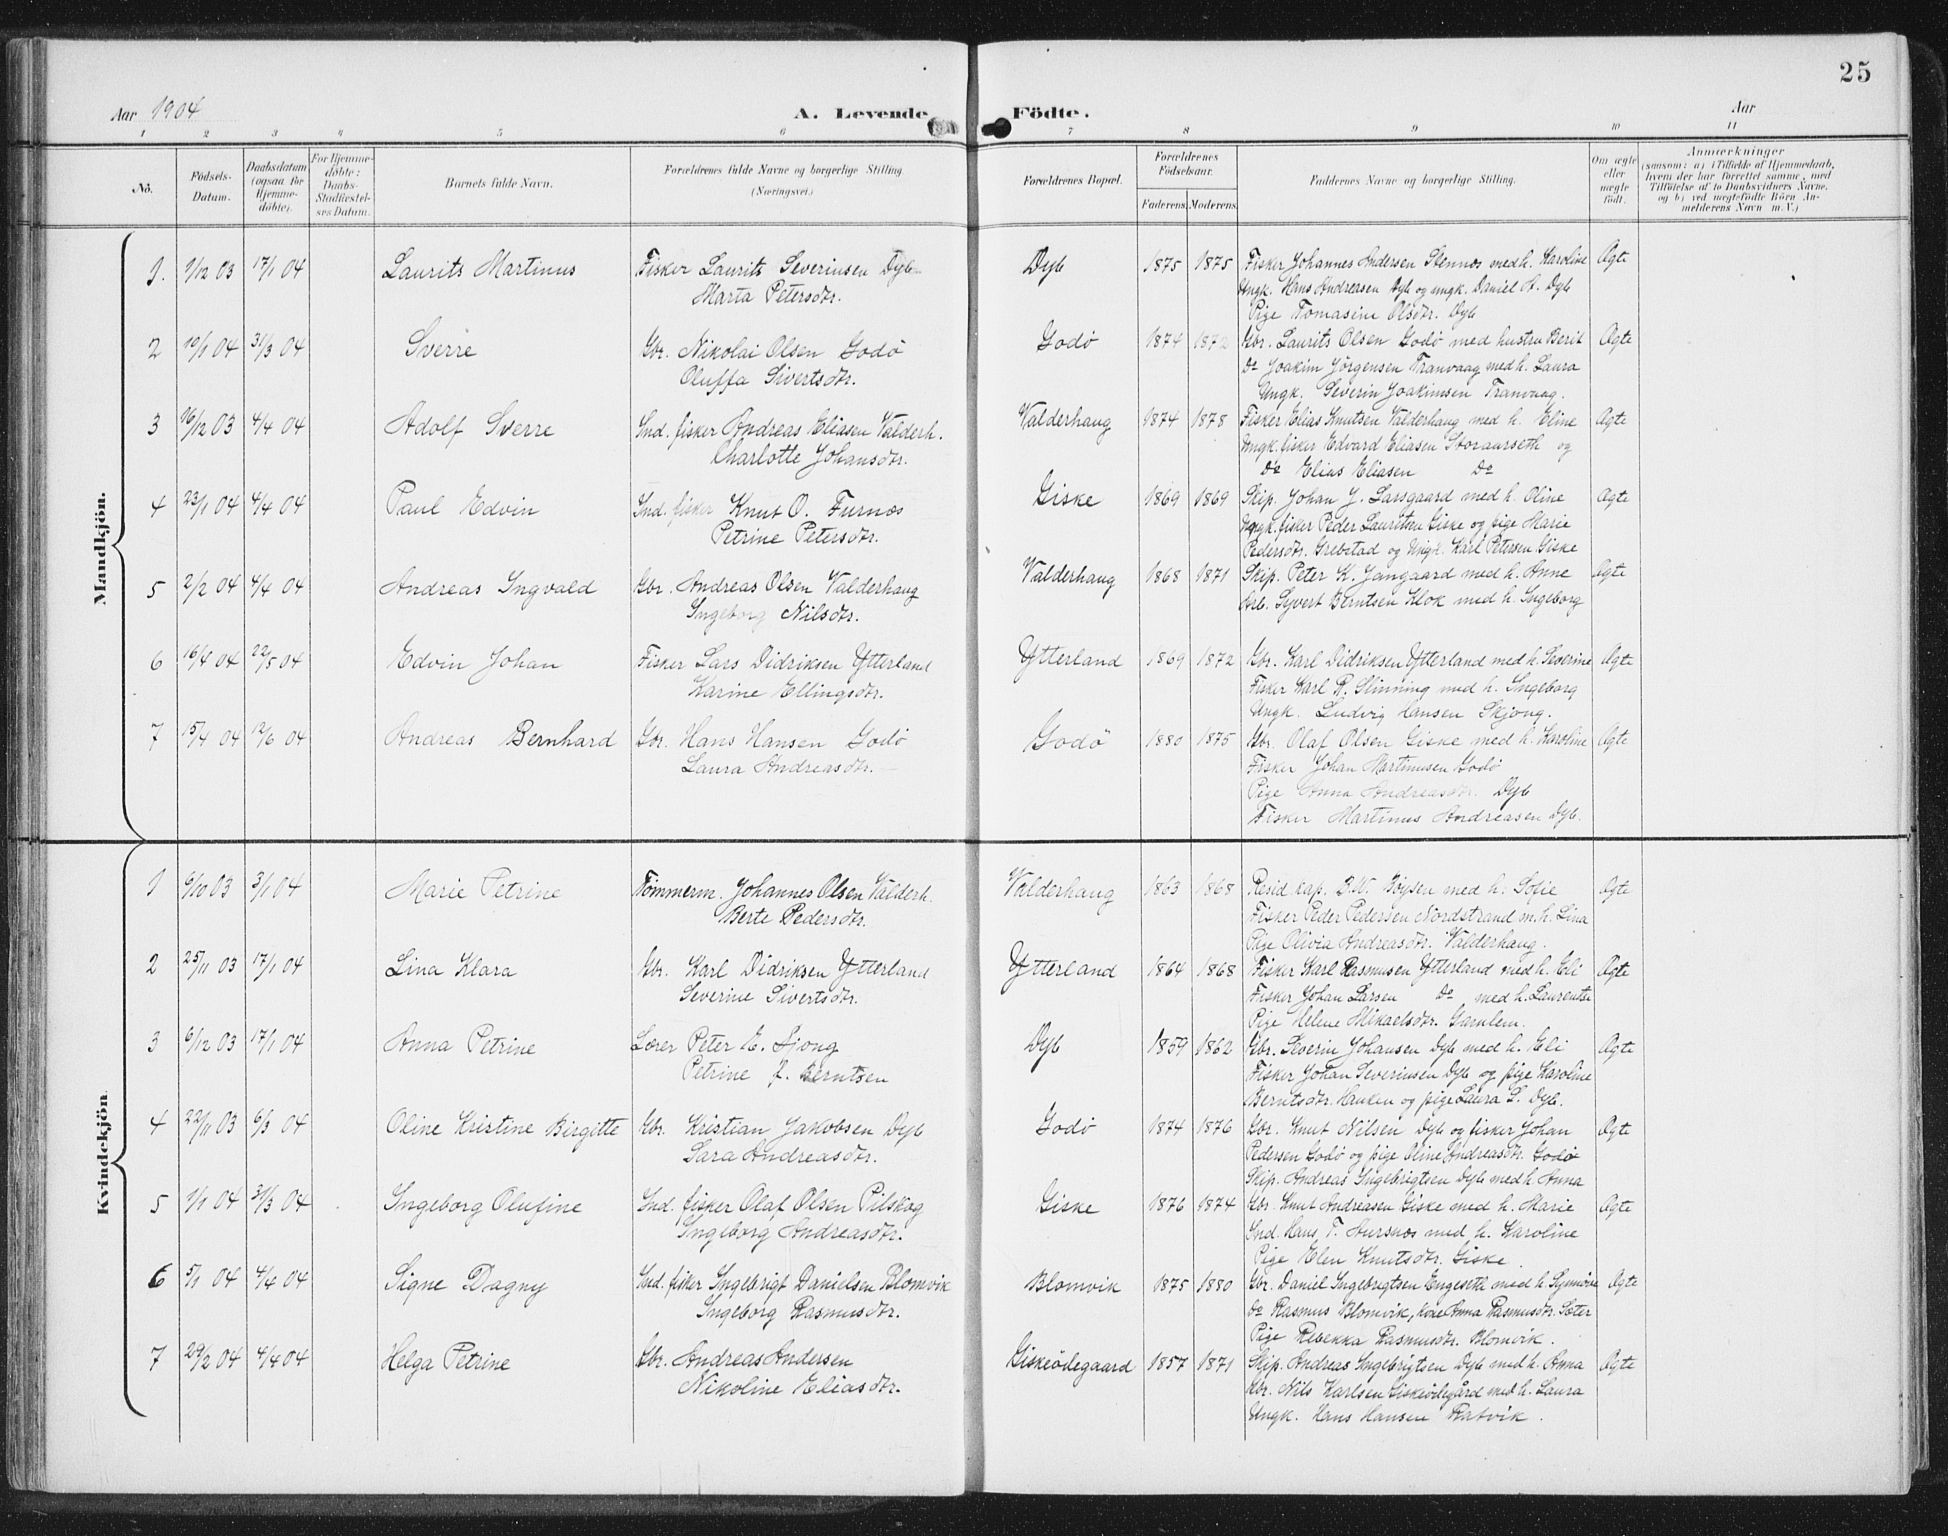 25
Aar 1904
A. Levende Födte.
Aar
1 2 3 4 5 6 7 8 9 10 11
No.
Födsels-Datum.
Daabsdatum (ogsaa for Hjemme-döbte).
For Hjemme-döbte: Daabs-Stadfæstel-ses Datum.
Barnets fulde Navn.
Forældrenes fulde Navne og borgerlige Stilling
(Næringsvei.)
Forældrenes Bopæl.
Forældrenes Födselsaar.
Faderens. Moderens.
Faddernes Navne og borgerlige Stilling.
Om ægte eller uægte födt.
Anmærkninger
(saasom: a) i Tilfælde af Hjemmedaab, hvem der har forrettet samme, med Tilföielse af to Daabsvidners Navne, og b) ved uægtefödte Börn An-melderens Navn m. V.)
Mandkjön.
1. 9/12 03 17/1 04 Laurits Martinus Fisker Laurits Severinsen Dyb Dyb 1875 1875 Fisker Johannes Andersen Stennes med h. Karoline Ægte
Marta Petersdtr. Ungk. Hans Andreasen Dyb og ungk. Daniel A. Dyb
Pige Tomasine Olsdtr. Dyb
2 10/1 04 31/3 04 Sverre Gbr. Nikolai Olsen Godö Godö 1874 1872 Gbr. Laurits Olsen Godö med hustru Berit Ægte
Oluffa Sivertsdtr. Do Joakim Jörgensen Tranvaag med h. Laura
Ungk. Severin Joakimsen Tranvaag.
3 16/12 03 4/4 04 Adolf Sverre Ind. fisker Andreas Eliasen Valderh. Valderhaug 1874 1878 Fisker Elias Knutsen Valderhaug med h. Eline Ægte
Charlotte Johansdtr. Ungk. fisker Edvard Eliasen Storaurseth og
Do Elias Eliasen Do
4 23/1 04 4/4 04 Paul Edvin Ind. fisker Knut O. Furnes Giske 1869 1869 Skip. Johan J. Larsgaard med h. Oline Ægte
Petrine Petersdtr. Ungk. fisker Peder Lauritsen Giske og pige Marie
Pedersdtr. Grebstad og Ungk. Karl Petersen Giske
5 2/2 04 4/4 04 Andreas Ingvald Gbr. Andreas Olsen Valderhaug Valderhaug 1868 1871 Skip. Peter K. Jangaard med h. Anne Ægte
Ingeborg Nilsdtr. Arb. Syvert Berntsen Klok med h. Ingeborg
6 16/4 04 22/5 04 Edvin Johan Fisker Lars Didriksen Ytterland Ytterland 1869 1872 Gbr. Karl Didriksen Ytterland med h. Severine Ægte
Karine Ellingsdtr. Fisker Karl R. Slinning med h. Ingeborg
Ungk. Ludvig Hansen Skjong.
7 15/4 04 12/6 04 Andreas Bernhard Gbr. Hans Hansen Godö Godö 1880 1875 Gbr. Olaf Olsen Giske med h. Karoline Ægte
Laura Andreasdtr. Fisker Johan Martinusen Godö
Pige Anna Andreasdtr. Dyb
Fisker Martinus Andreasen Dyb.
Kvindekjön.
1 6/10 03 3/1 04 Marie Petrine Tömmerm. Johannes Olsen Valderh. Valderhaug 1863 1868 Resid. kap. B.W. Böysen med h. Sofie Ægte
Berte Pedersdtr. Fisker Peder Pedersen Nordstrand m. h. Lina
Pige Olivia Andreasdtr. Valderhaug.
2 25/11 03 17/1 04 Lina Klara Gbr. Karl Didriksen Ytterland Ytterland 1864 1868 Fisker Karl Rasmusen Ytterland med h. Eli Ægte
Severine Sivertsdtr. Fisker Johan Larsen Do med h. Laurentse
Pige Helene Mikaelsdtr. Garnlem.
3 6/12 03 17/1 04 Anna Petrine Lærer Peter E. Liong Dyb 1859 1862 Gbr. Severin Johansen Dyb med h. Eli Ægte
Petrine J. Berntsen Fisker Johan Severinsen Dyb og pige Karoline
Berntsdtr. Hauken og pige Laura L. Dyb.
4 22/11 03 6/3 04 Oline Kristine Birgitte Gbr. Kristian Jakobsen Dyb Godö 1874 1876 Gbr. Knut Nilsen Dyb og fisker Johan Ægte
Sara Andreasdtr. Pedersen Godö og pige Oline Andreasdtr. Godö
Skip. Andreas Ingebrigtsen Dyb med h. Anna
5 1/1 04 31/3 04 Ingeborg Olufine Ind. fisker Olaf Olsen Pilskog Giske 1876 1874 Gbr. Knut Andreasen Giske med h. Marie Ægte
Ingeborg Andreasdtr. Ind. Hans T. Aursnes med h. Karoline
Pige Elen Knutsdtr. Giske.
6 5/1 04 4/4 04 Signe Dagny Ind. fisker Ingebrigt Danielsen Blomvik Blomvik 1875 1880 Gbr. Daniel Ingebrigtsen Engeseth med h. Synnöve Ægte
Ingeborg Rasmusdtr. Do Rasmus Blomvik, kone Anna Rasmusdtr. Sæter
Pige Rebekka Rasmusdtr. Blomvik.
7 29/2 04 4/4 04 Helga Petrine Gbr. Andreas Andersen Giskeödegaard 1857 1871 Skip. Andreas Ingebrigtsen Dyb med h. Anna Ægte
Nikoline Eliasdtr. Gbr. Nils Karlsen Giskeödegård med h. Laura
Ungk. Hans Hansen Ratvik.